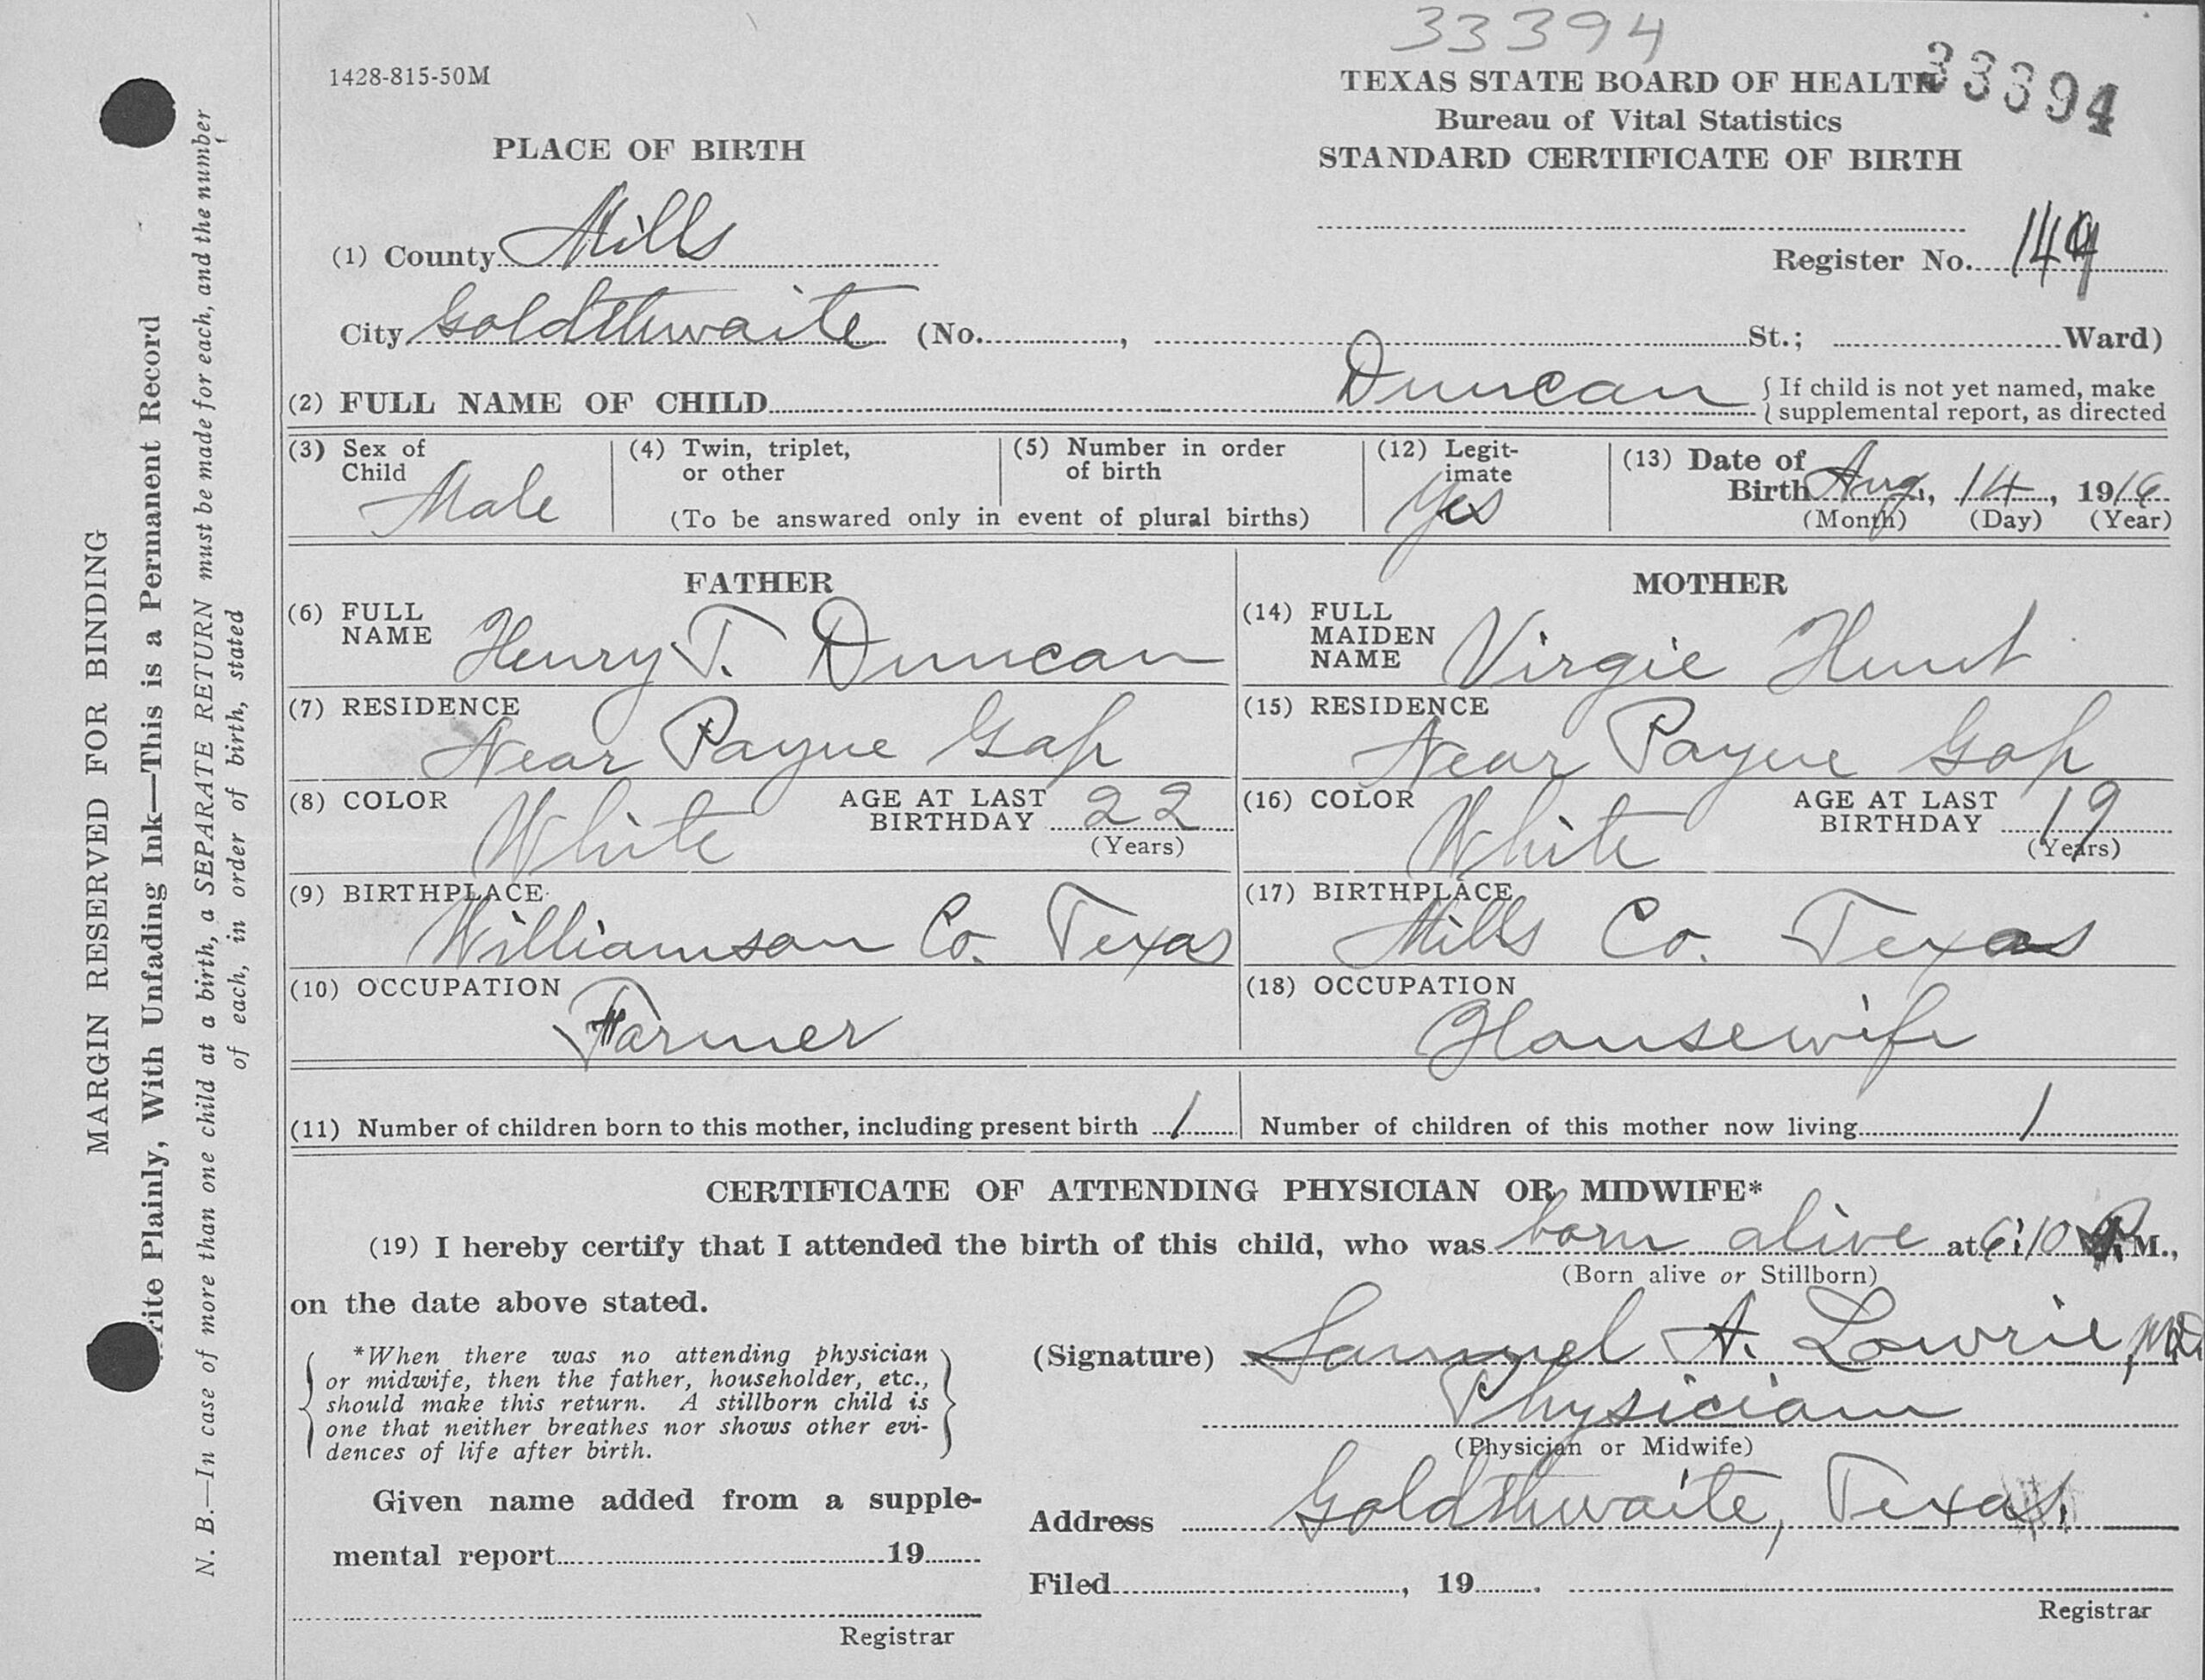 33394
1428-815-50M
TEXAS STATE BOARD OF HEALTH 33394
Bureau of Vital Statistics
STANDARD CERTIFICATE OF BIRTH
PLACE OF BIRTH
(1) County Mills
Register No.
City Goldthwaite (No. , St.; Ward)
(2) FULL NAME OF CHILD Duncan { If child is not yet named, make
supplemental report, as directed
(3) Sex of Child Male
(4) Twin, triplet, or other
(5) Number in order of birth
(To be answared only in event of plural births)
(12) Legit-imate Yes
(13) Date of Birth Aug., 14, 1916
(Month) (Day) (Year)
FATHER
(6) FULL NAME Henry T. Duncan
(7) RESIDENCE Near Payne Gap
(8) COLOR White AGE AT LAST BIRTHDAY 22
(Years)
(9) BIRTHPLACE Williamson Co. Texas
(10) OCCUPATION Farmer
MOTHER
(14) FULL MAIDEN NAME Virgie Hunt
(15) RESIDENCE Near Payne Gap
(16) COLOR White AGE AT LAST BIRTHDAY 19
(Years)
(17) BIRTHPLACE Mills Co. Texas
(18) OCCUPATION Housewife
(11) Number of children born to this mother, including present birth 1 Number of children of this mother now living 1
CERTIFICATE OF ATTENDING PHYSICIAN OR MIDWIFE*
(19) I hereby certify that I attended the birth of this child, who was born alive at 6:10 P. M.,
(Born alive or Stillborn)
on the date above stated.
*When there was no attending physician
or midwife, then the father, householder, etc.,
should make this return. A stillborn child is
one that neither breathes nor shows other evi-
dences of life after birth.
(Signature) Samuel A. Lowrie, M.D.
Physician
(Physician or Midwife)
Given name added from a supple-
mental report 19
Registrar
Address Goldthwaite, Texas.
Filed , 19 .
Registrar
MARGIN RESERVED FOR BINDING
rite Plainly, With Unfading Ink—This is a Permanent Record
N. B.—In case of more than one child at a birth, a SEPARATE RETURN must be made for each, and the number
of each, in order of birth, stated